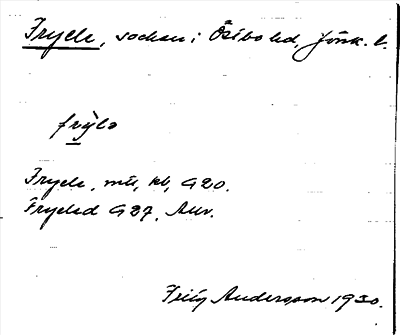 Fryele, socken i Östbo hd, Jönk. l.
frỳlə
Fryele, mtl, kb, G20.
Fryeled G27. Anv.
Frits Andersson 1930.